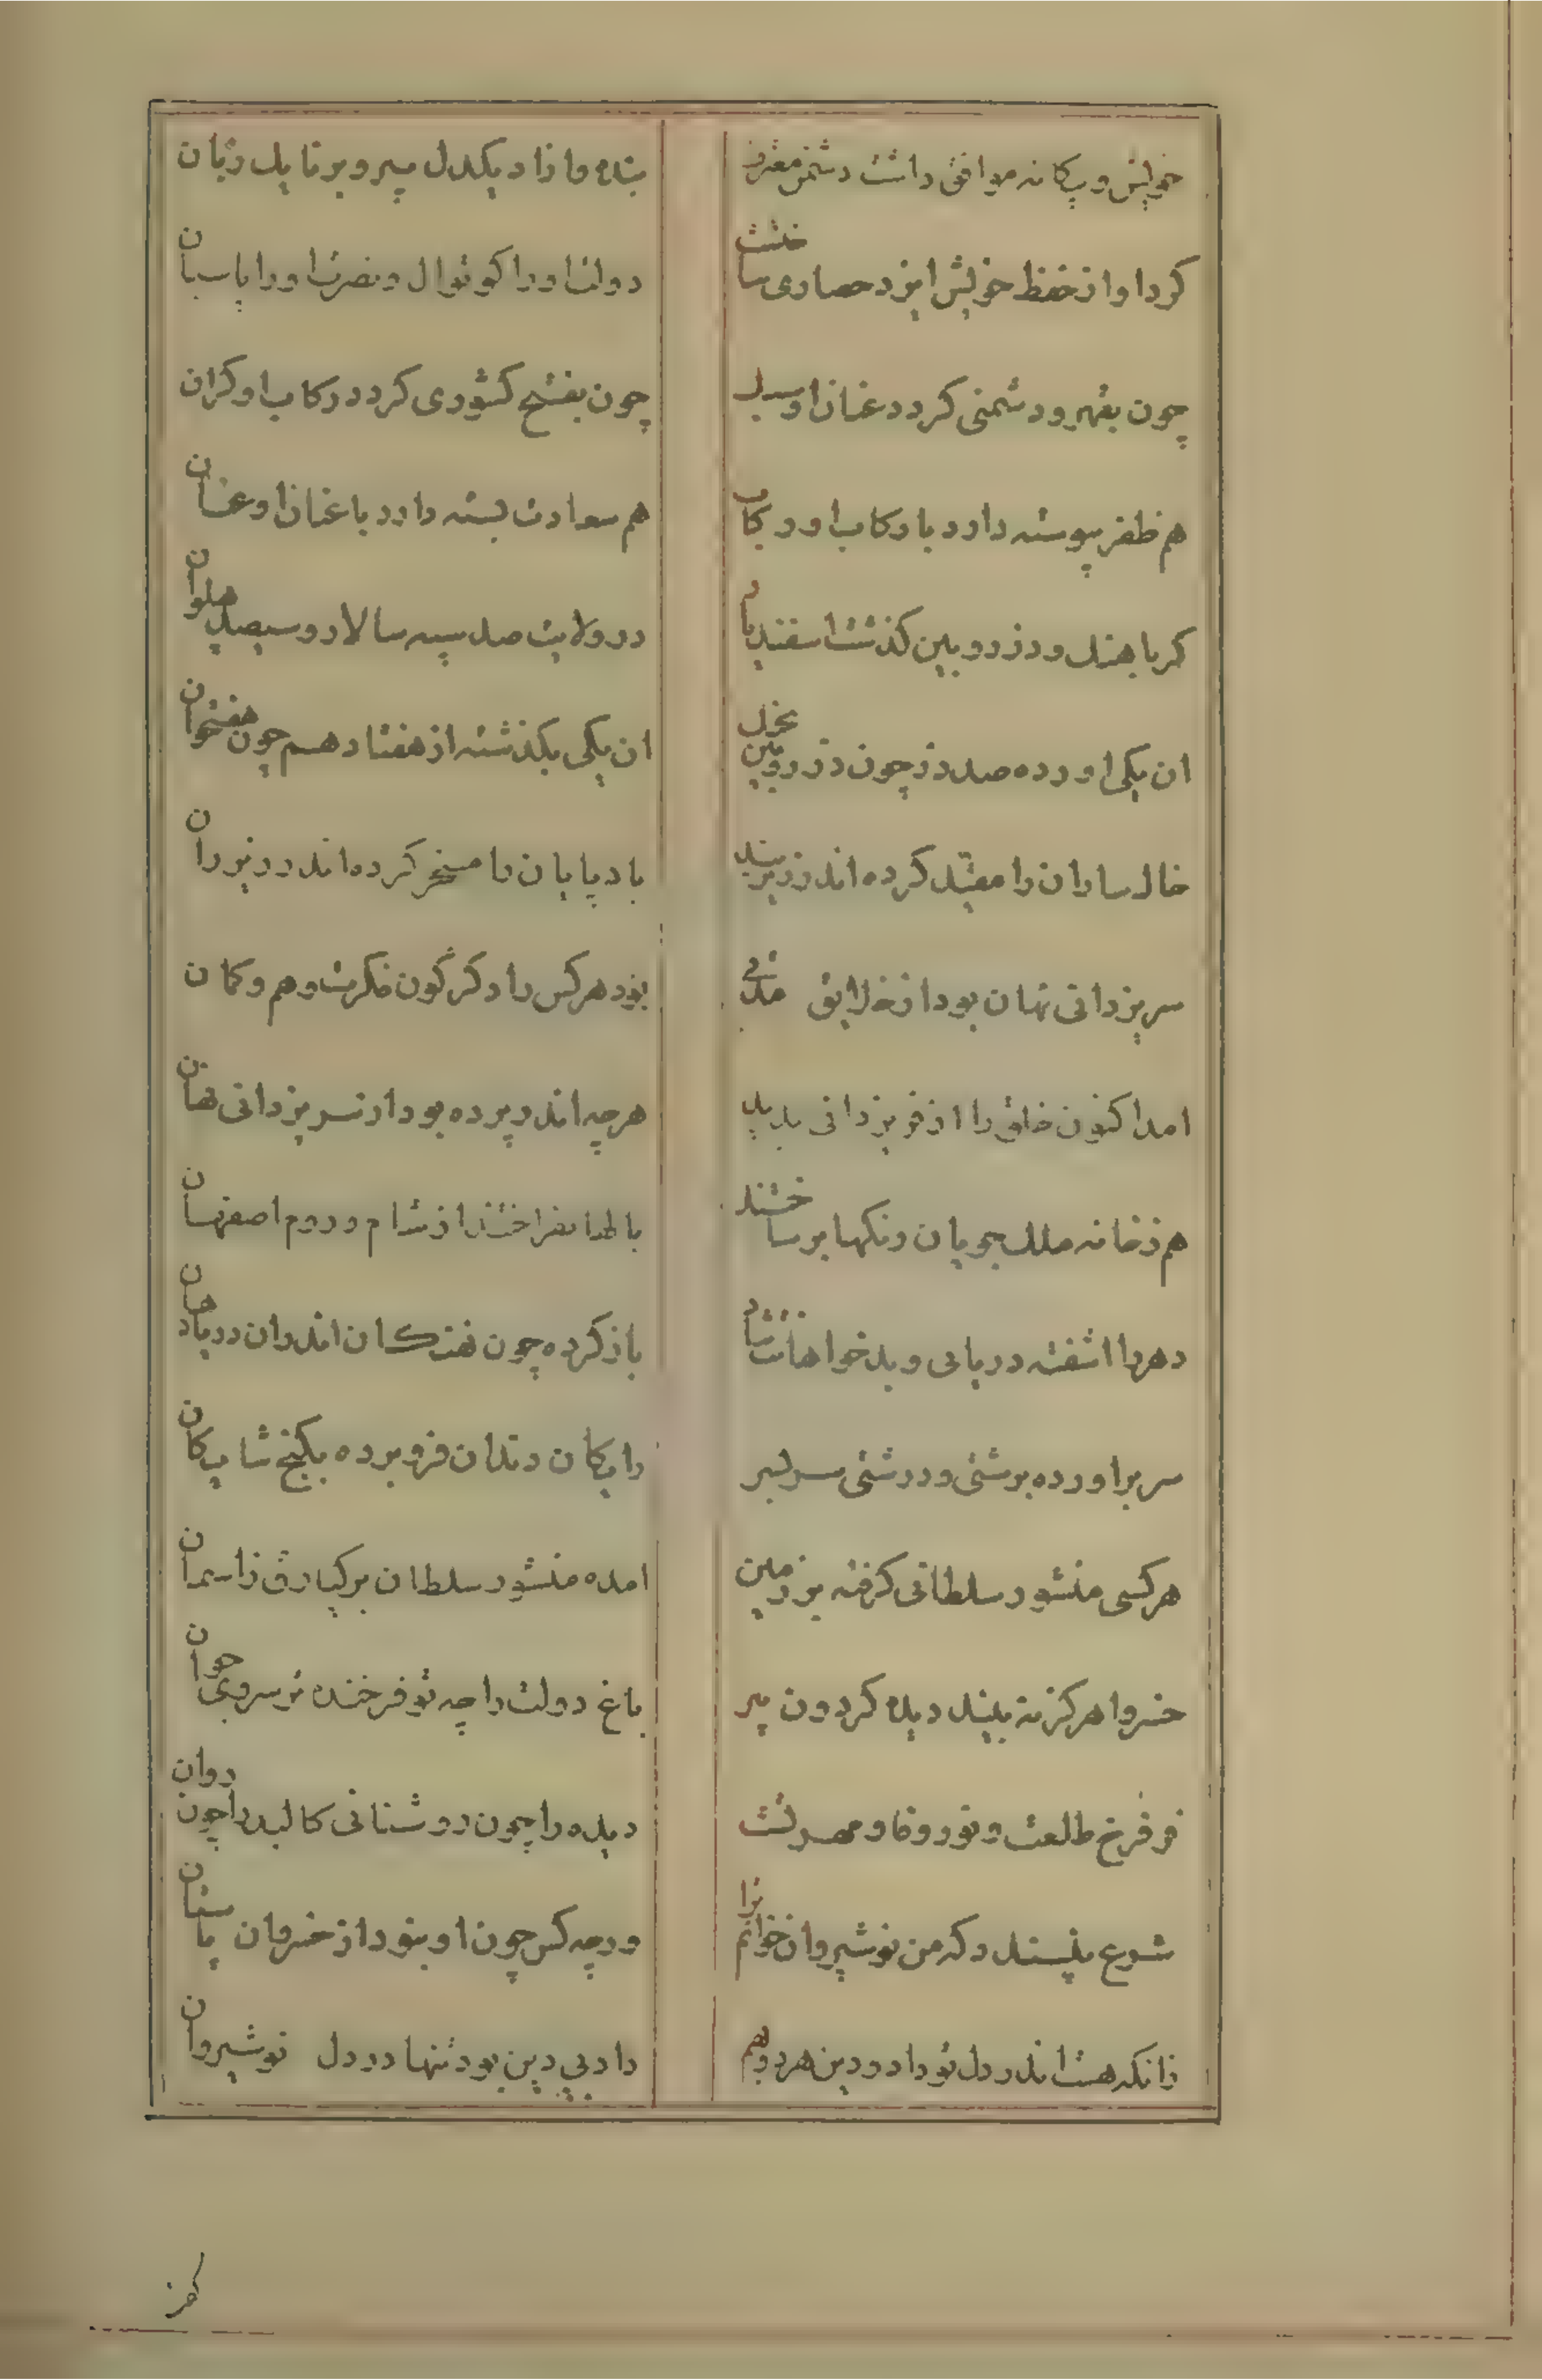 خویش و بیکانه موافق دوست دشمن معترف
بنده و ازاد یکدل پیر و برنا یک زبان
کرد او از حفظ خویش ایزد حصاری ساخت
دولت او را کوتوال و نصرت او را پاسبان
چون بقهر دشمنی کردد عنان او سبک
چون بفتح کشوری کردد رکاب او کران
هم ظفر پیوسته دارد با رکاب او رکاب
هم سعادت بسته دارد با عنان او عنان
کر باهند و دز رویین کذشت اسفندیار
در ولایت صد سپه سالار و سیصد پهلوان
ان یکی اورده صد دز چون دز رویین
ان یکی بکذشته از هفتاد هم چون هفتخوان
خاکساران را مقید کرده اند در زیر بند
باد پایان را مسخر کرده اند در زیر ران
سر یزدانی نهان بود از خلایق مدتی
بود هر کس را دکر کون فکرت و هم و کمان
امد اکنون خلق را از فر یزدانی پدید
هر چه اندر پرده بود از سر یزدانی نهان
هم ز خانه ملک جویان رنکها بر ساختند
بفراختند از شام و روم اصفهان
دهر را اشفته دریایی و بدخواهانت شاد
باز کرده چون نهنکان اندران دریا دهان
سر براورده بزشتی و درشتی سر بسر
رایکان دندان فرو برده بکنج شایکان
هر کسی منشور سلطانی کرفته بر زمین
امده منشور سلطان برکیارق ز اسمان
خسروا هرکز نه بیند دیده کردون پیر
باغ دولت را چه تو فرخنده تر سروی جوان
فر فرخ طلعت و نور وفا و مهر تست
دیده را چون روشنائی کالبد را چون روان
شرع نپسندد که من نوشیروان خوانم ترا
ور چه کس چون او نبود از خسروان باستان
زانکه هست اندر دل تو داد و دین هر دو بهم
داد بی دین بود تنها در دل نوشیروان